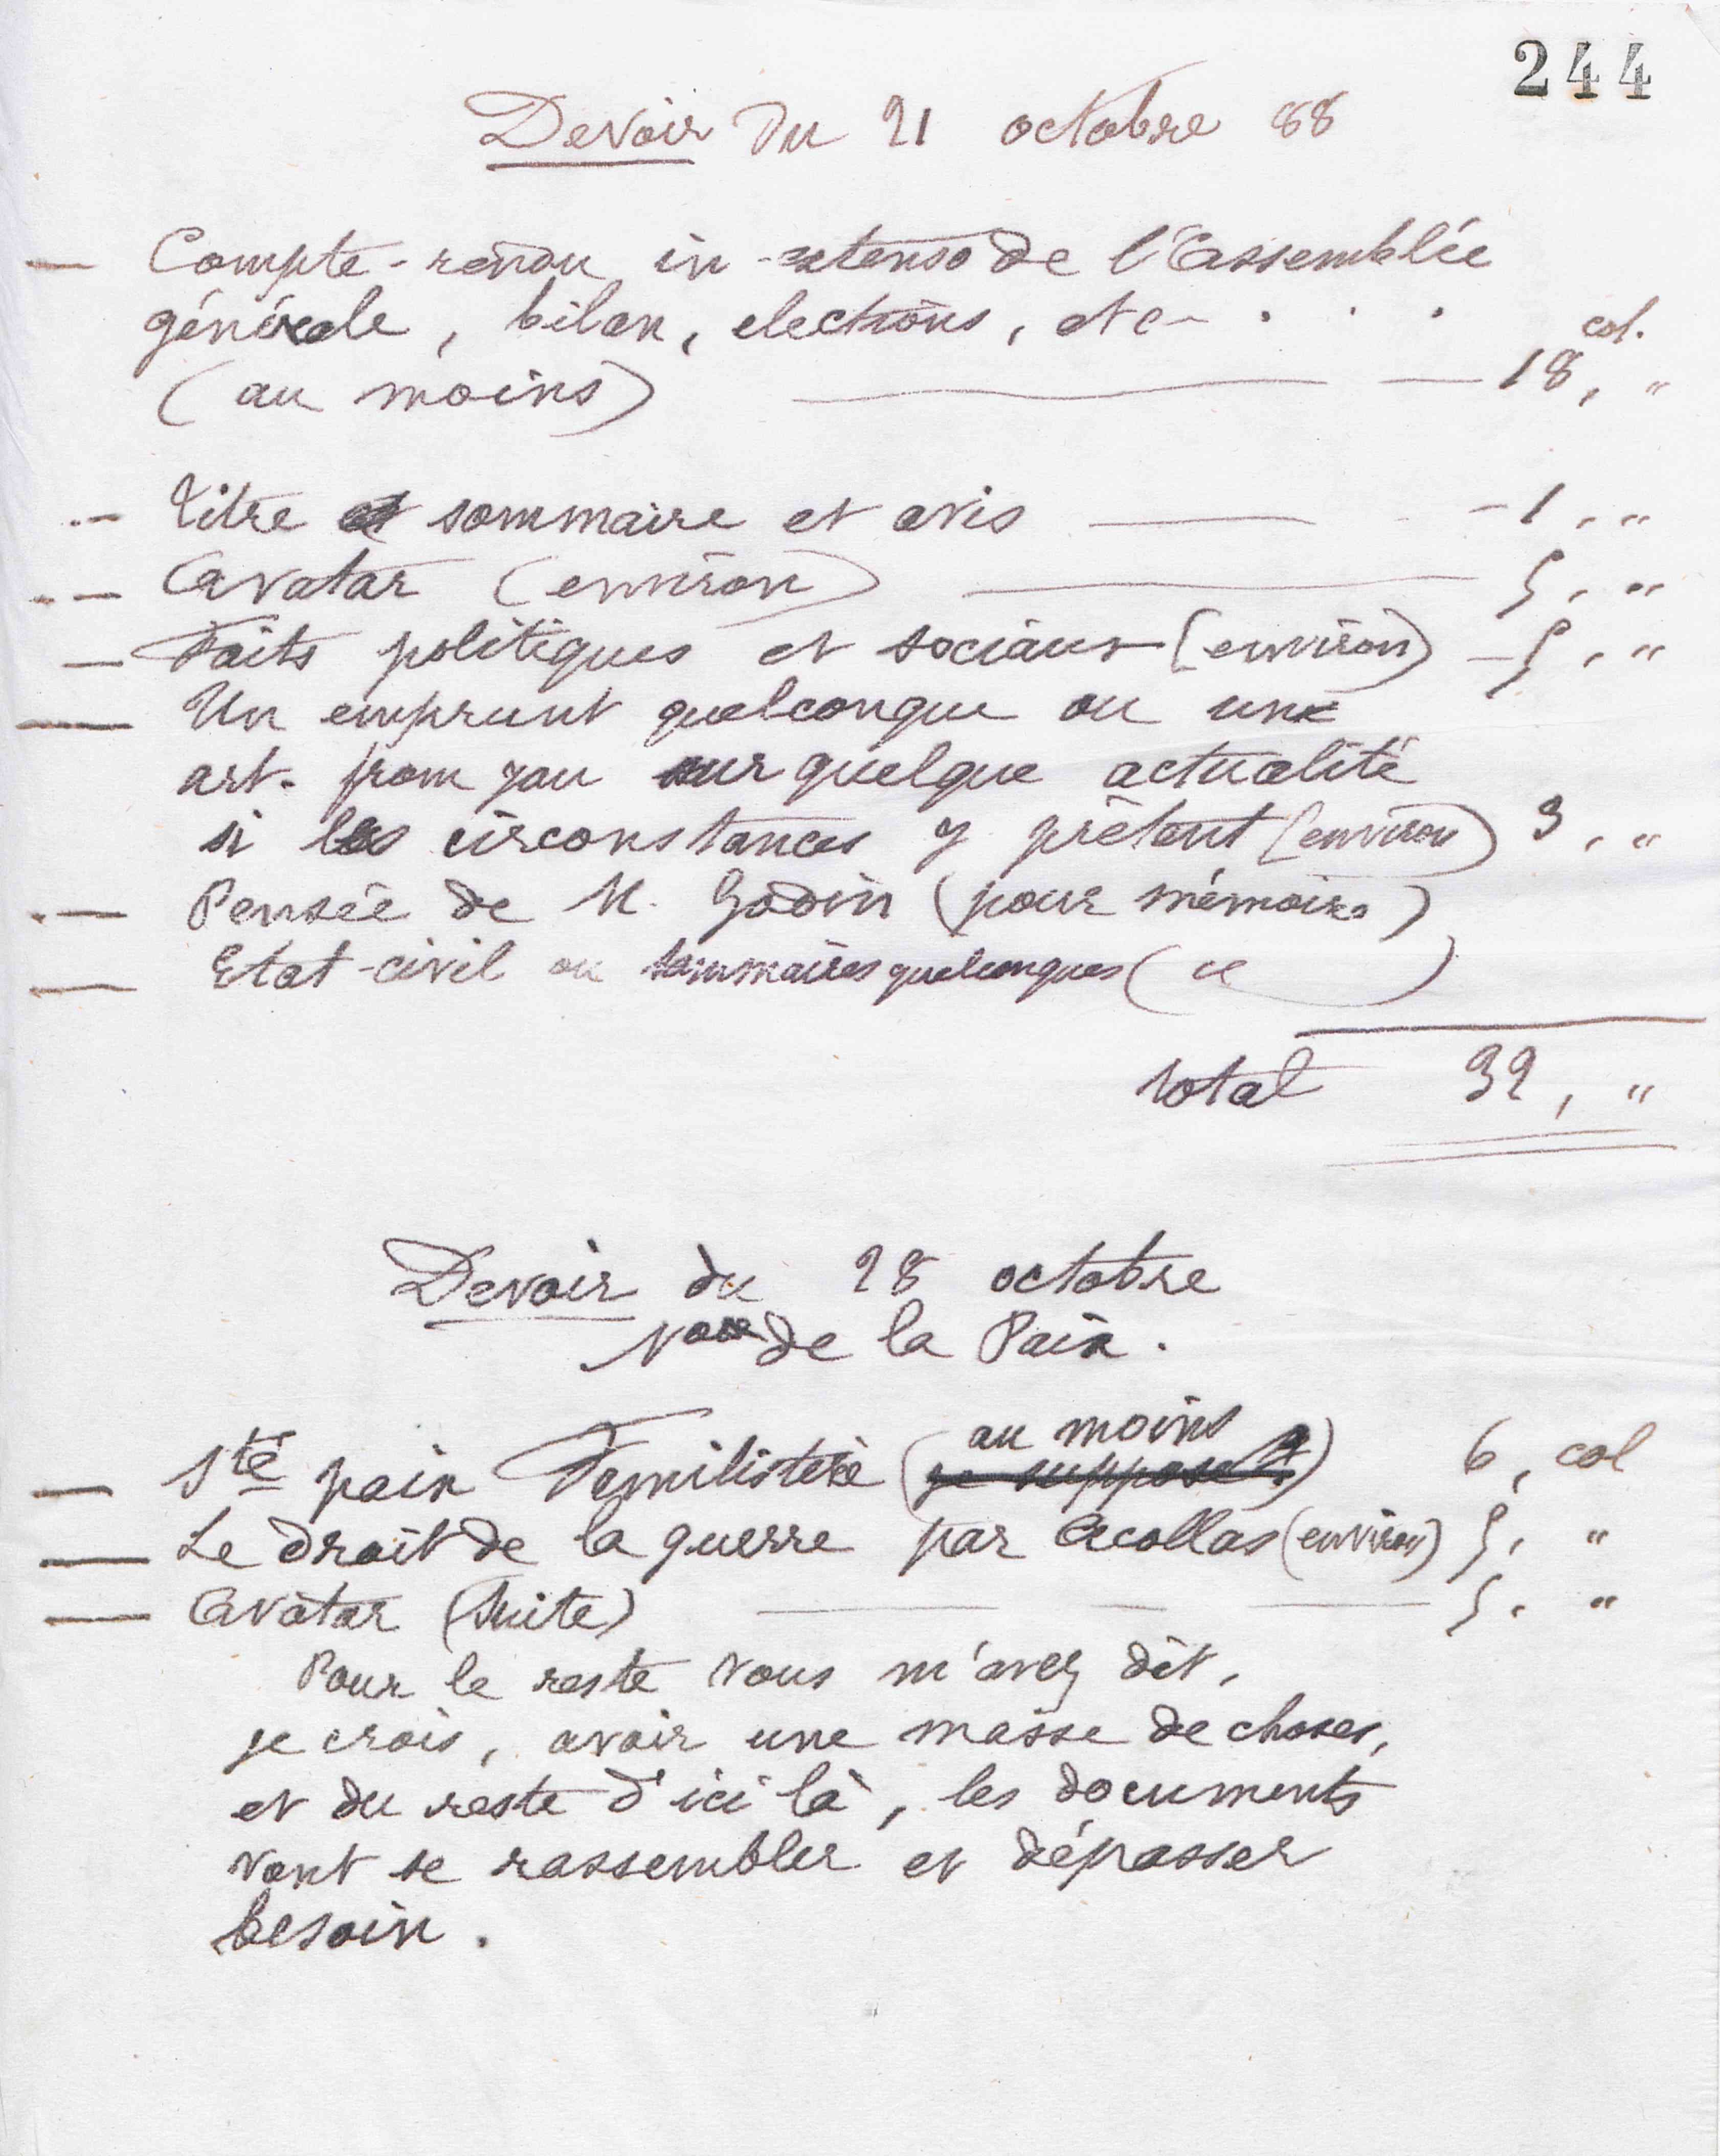 244
Devoir du 21 octobre 88
— Compte-rendu in-extenso de l'Assemblée
générale, bilan, elections, etc - . . .
col.
(au moins) — — 18, "
— Titre sommaire et avis — - 1, "
— Avatar (environ) — 5, "
— Faits politiques et sociaux (environ) — 5, "
— Un emprunt quelconque ou une
art. sur quelque actualité
si les circonstances y prêtent (environ) 3, "
— Pensée de M. Godin (pour mémoire)
— Etat-civil ou sommaires quelconques ( )
total 32, "
Devoir du 28 octobre
de la Paix.
au moins
— Sté paix Familistère (je suppose) 6, col
— Le droit de la guerre par Acollas (environ) 5, "
— Avatar (Suite) — — — 5, "
Pour le reste vous m'avez dit,
je crois, avoir une masse de choses,
et du reste d'ici là, les documents
vont se rassembler et dépasser
besoin.